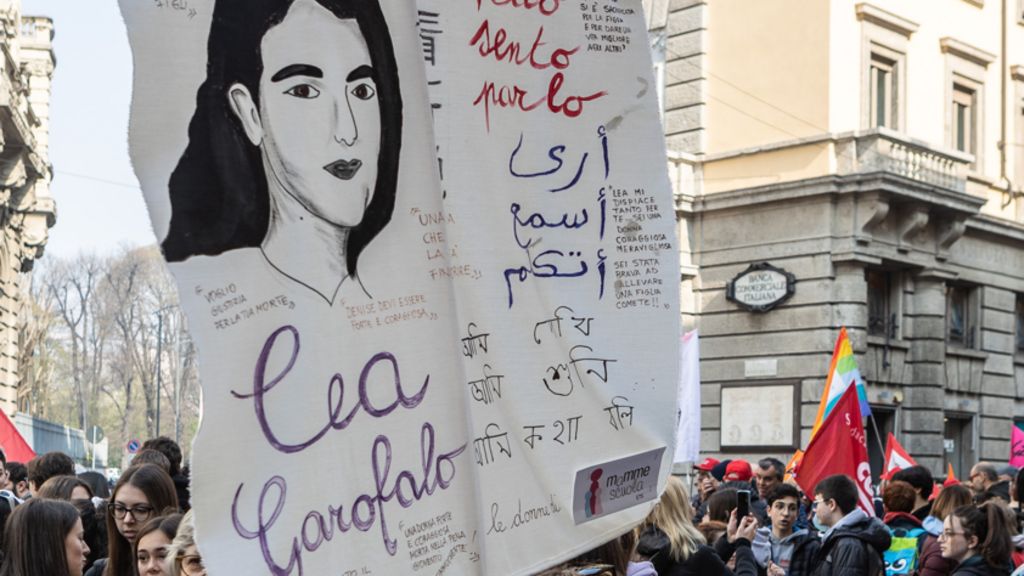 sento
parlo
PER LA FIGLIA
E PER DARE
VITA MIGLIORE
AGLI ALTRI"
أرى
أسمع
أتكلم
LEA MI
DISPIACE
TANTO PER
TE. SEI UNA
DONNA
CORAGGIOSA
MERAVIGLIOSA
SEI STATA
BRAVA AD
ALLEVARE
UNA FIGLIA
COME TE!!
"VOGLIO
GIUSTIZIA
PER LA TUA MORTE"
DENISE DEVI ESSERE
FORTE E CORAGGIOSA
আমি দেখি
আমি শুনি
আমি কথা বলি
Lea
Garofalo
"UNA DONNA FORTE
E CORAGGIOSA
le donne di
mamme
scuola
BANCA
COMMERCIALE
ITALIANA